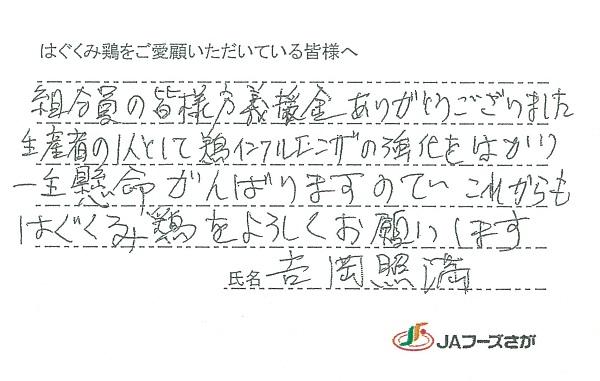 はぐくみ鶏をご愛顧いただいている皆様へ
組合員の皆様方義援金ありがとうございました
生産者の1人として鶏インフルエンザの強化をはかり
一生懸命がんばりますのでこれからも
はぐくみ鶏をよろしくお願いします
氏名 吉岡照満
JAフーズさが